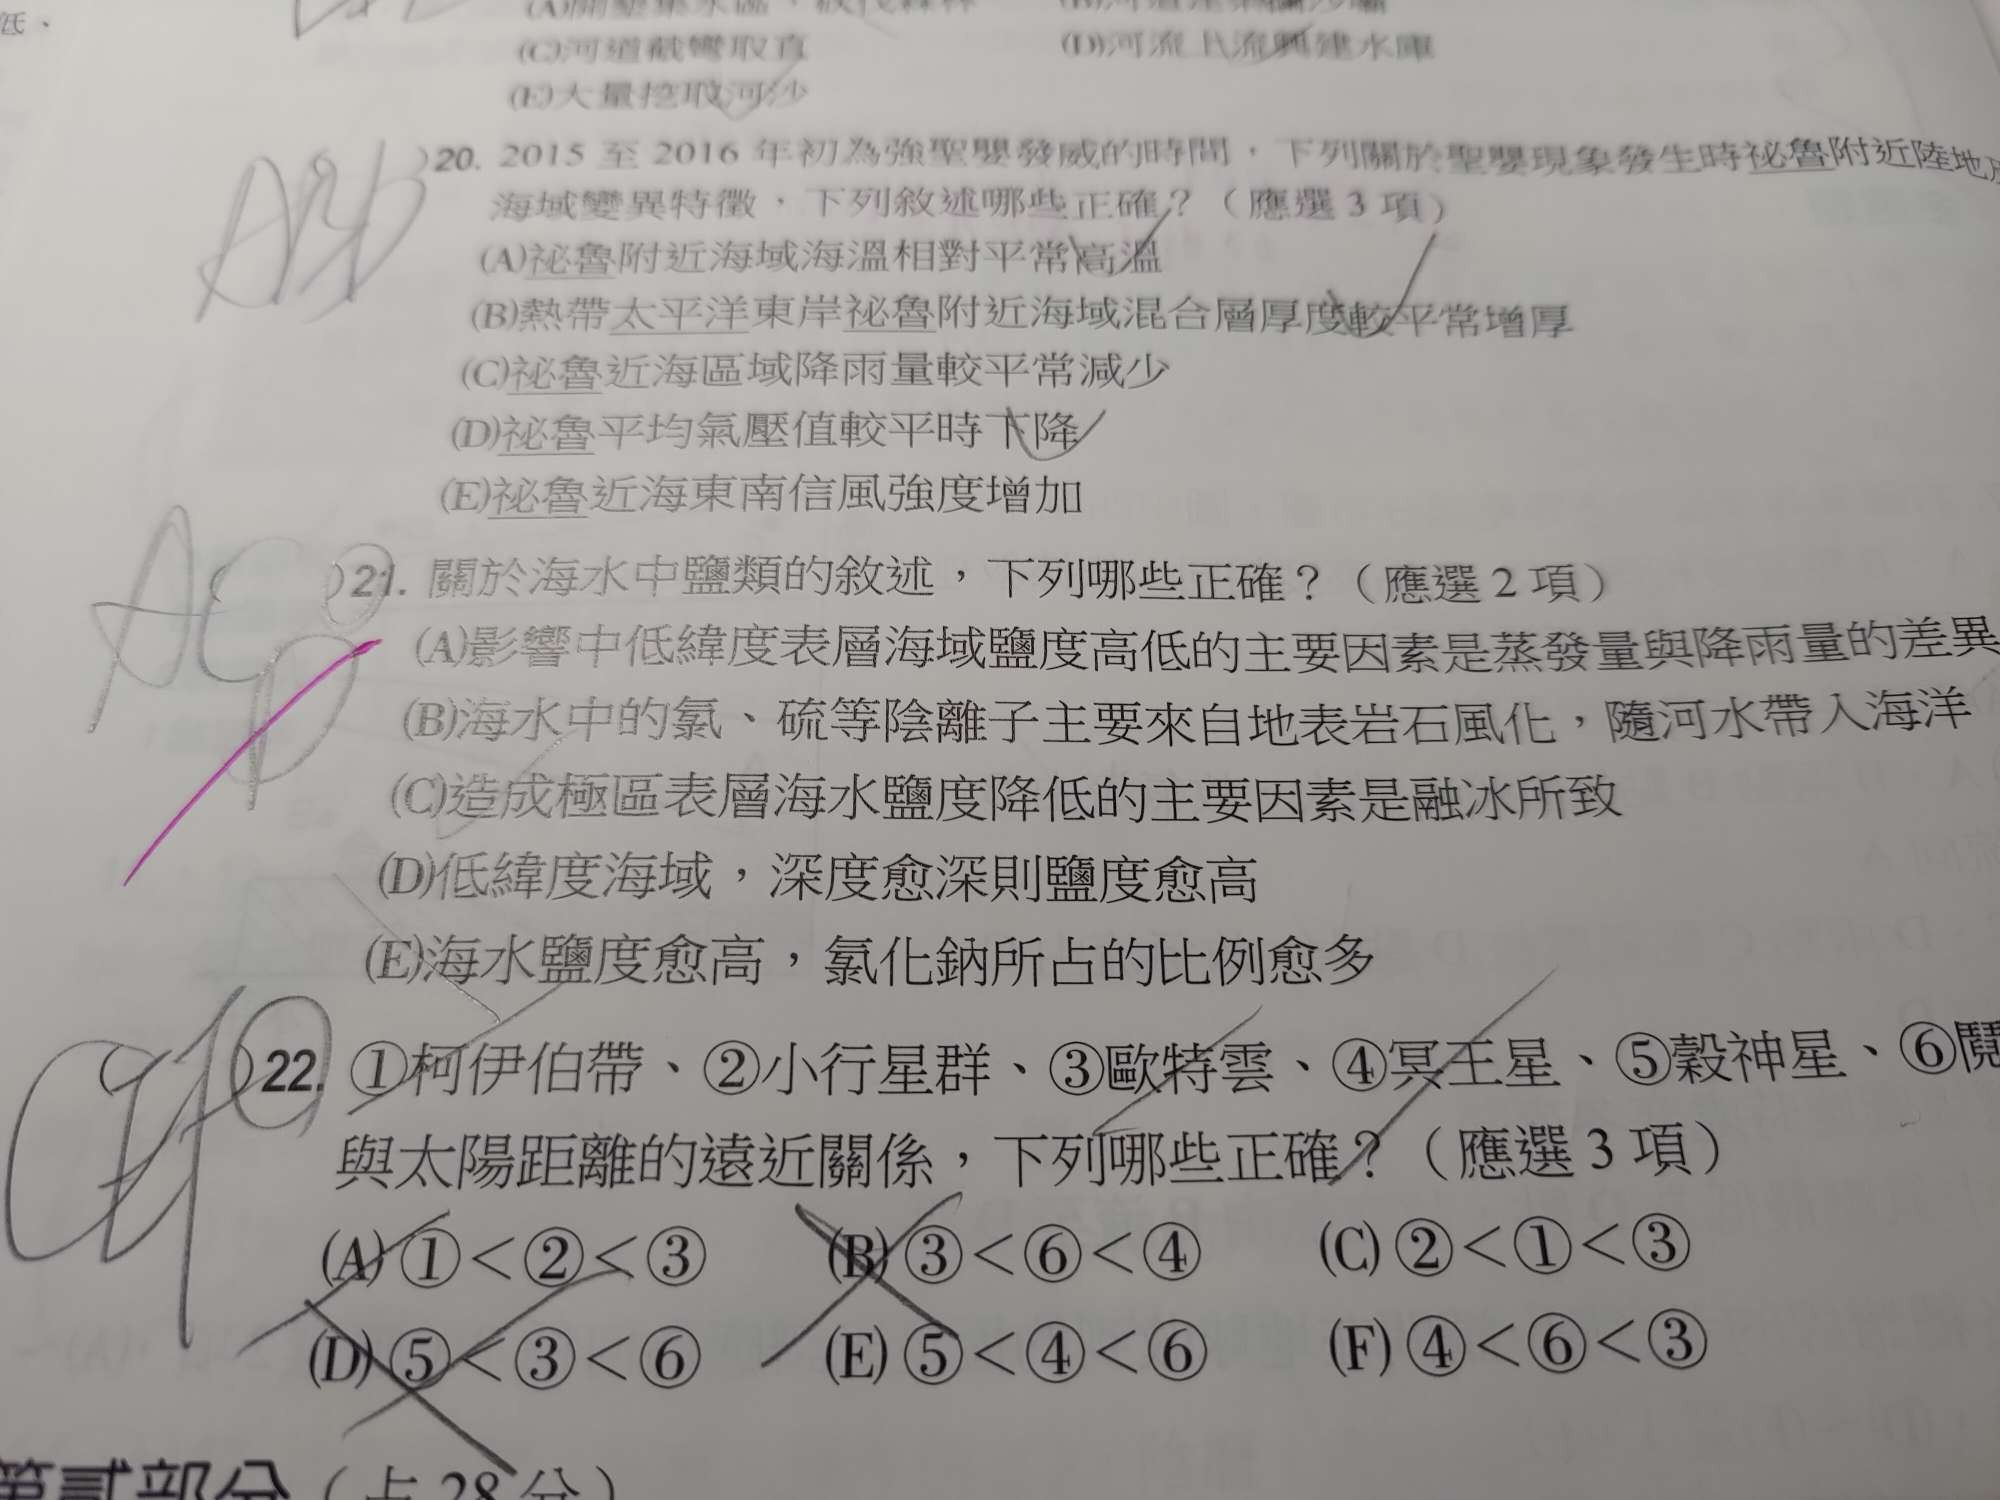 低、
(C)河道截彎取直 (D)河流上流興建水庫
(E)大量挖取河沙
ABD
20. 2015 至 2016 年初為強聖嬰發威的時間，下列關於聖嬰現象發生時祕魯附近陸地
海域變異特徵，下列敘述哪些正確？（應選 3 項）
(A)祕魯附近海域海溫相對平常高溫
(B)熱帶太平洋東岸祕魯附近海域混合層厚度較平常增厚
(C)祕魯近海區域降雨量較平常減少
(D)祕魯平均氣壓值較平時下降
(E)祕魯近海東南信風強度增加
AC
21. 關於海水中鹽類的敘述，下列哪些正確？（應選 2 項）
(A)影響中低緯度表層海域鹽度高低的主要因素是蒸發量與降雨量的差異
(B)海水中的氯、硫等陰離子主要來自地表岩石風化，隨河水帶入海洋
(C)造成極區表層海水鹽度降低的主要因素是融冰所致
(D)低緯度海域，深度愈深則鹽度愈高
(E)海水鹽度愈高，氯化鈉所占的比例愈多
22. ①柯伊伯帶、②小行星群、③歐特雲、④冥王星、⑤穀神星、⑥鬩
與太陽距離的遠近關係，下列哪些正確？（應選 3 項）
(A) ①＜②＜③ (B) ③＜⑥＜④ (C) ②＜①＜③
(D) ⑤＜③＜⑥ (E) ⑤＜④＜⑥ (F) ④＜⑥＜③
第貳部分（占 28 分）